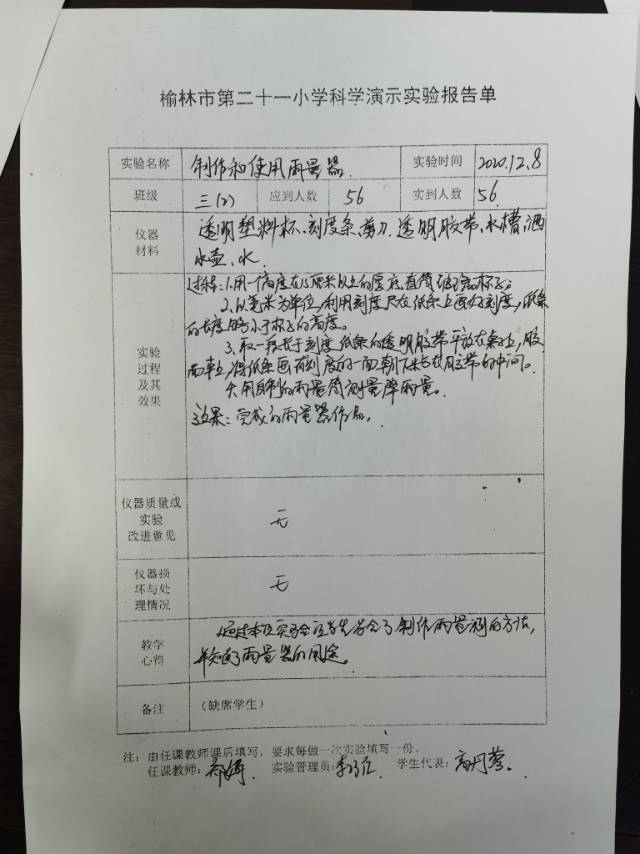 榆林市第二十一小学科学演示实验报告单
实验名称 制作和使用雨量器 实验时间 2020.12.8
班级 三(2) 应到人数 56 实到人数 56
仪器材料 透明塑料杯、刻度条、剪刀、透明胶带、水槽、洒
水壶、水
实验过程及其效果
过程:1.用一个高度在15厘米以上的厚底直筒玻璃杯子。
2.以毫米为单位,利用刻度尺在纸条上画好刻度,纸条
的长度略小于杯子的高度。
3.取一段长于刻度纸条的透明胶带平放在桌上,胶
面朝上,将纸条画有刻度的一面朝下粘在胶带的中间。
4.用自制的雨量筒测量降雨量。
效果:完成的雨量器作品。
仪器质量或实验改进意见 无
仪器损坏与处理情况 无
教学心得 通过本次实验让学生学会了制作雨量器的方法,
并知道了雨量器的用途。
备注 (缺席学生)
注:由任课教师课后填写,要求每做一次实验填写一份。
任课教师: 实验管理员: 学生代表: